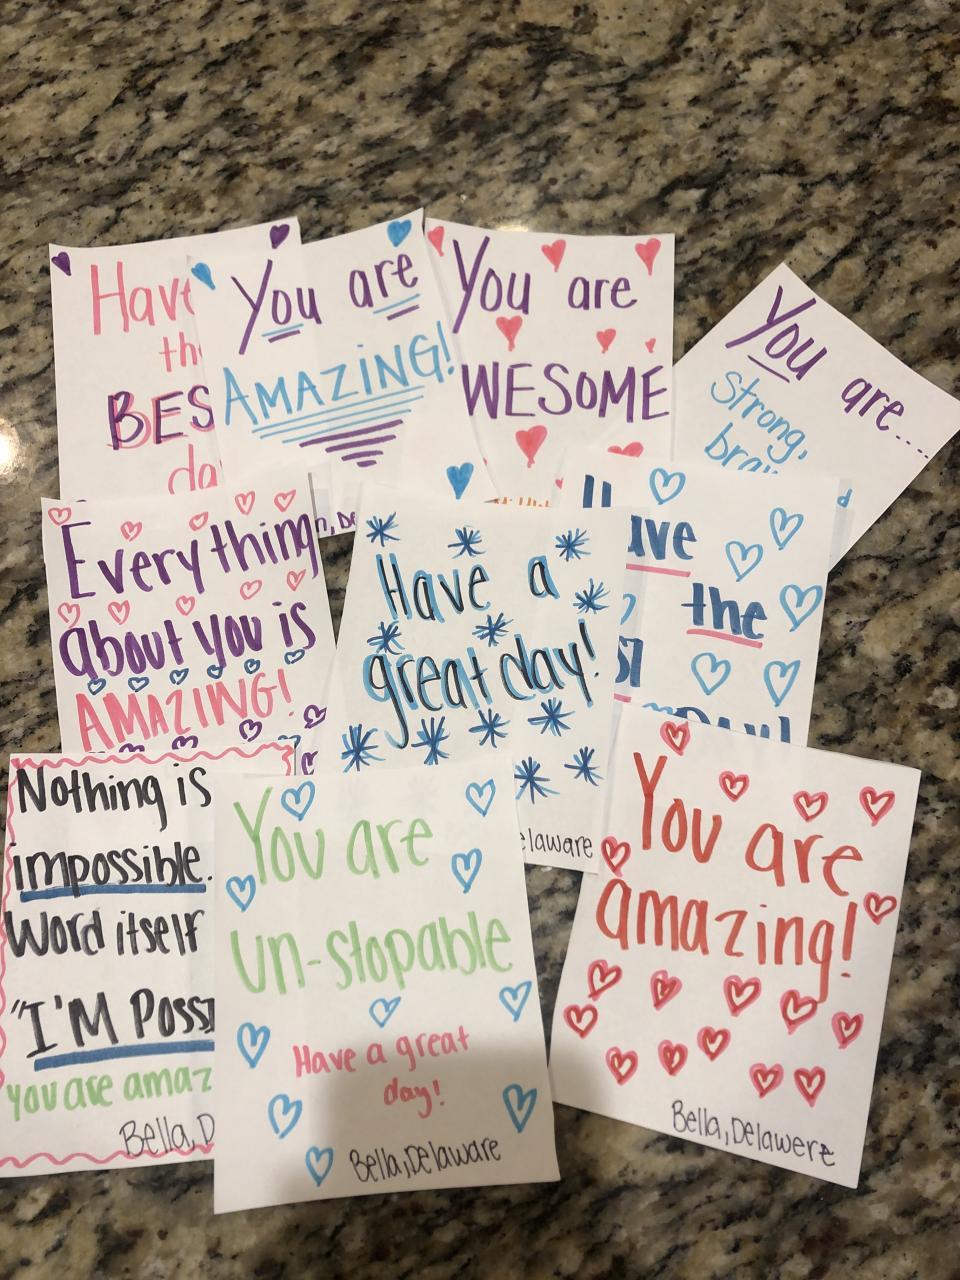 Have
BES
You are
AMAZING!
You are
WESOME
You
are...
Strong,
Everything
about you is
AMAZING!
Have a
great day!
elaware
the
Nothing is
impossible.
Word itself
"I'M POSSI
You are amaz
Bella, D
You are
un-stopable
Have a great
day!
Bella, Delaware
You are
amazing!
Bella, Delawere